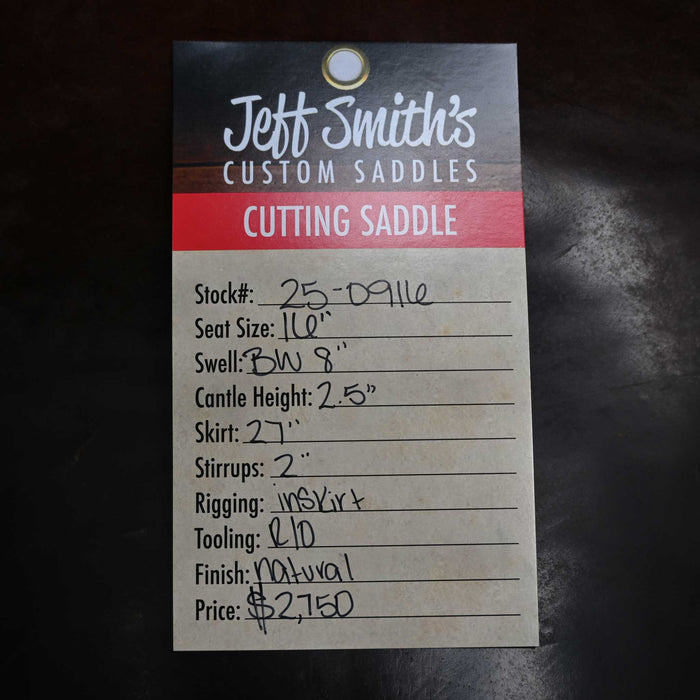 Jeff Smith's
CUSTOM SADDLES
CUTTING SADDLE
Stock#: 25-0916
Seat Size: 16"
Swell: BW 8"
Cantle Height: 2.5"
Skirt: 27"
Stirrups: 2"
Rigging: inskirt
Tooling: R/O
Finish: natural
Price: $2,750